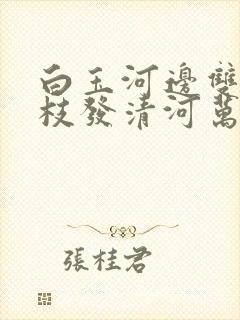 白玉河邊雙
枝發清河萬
張桂君